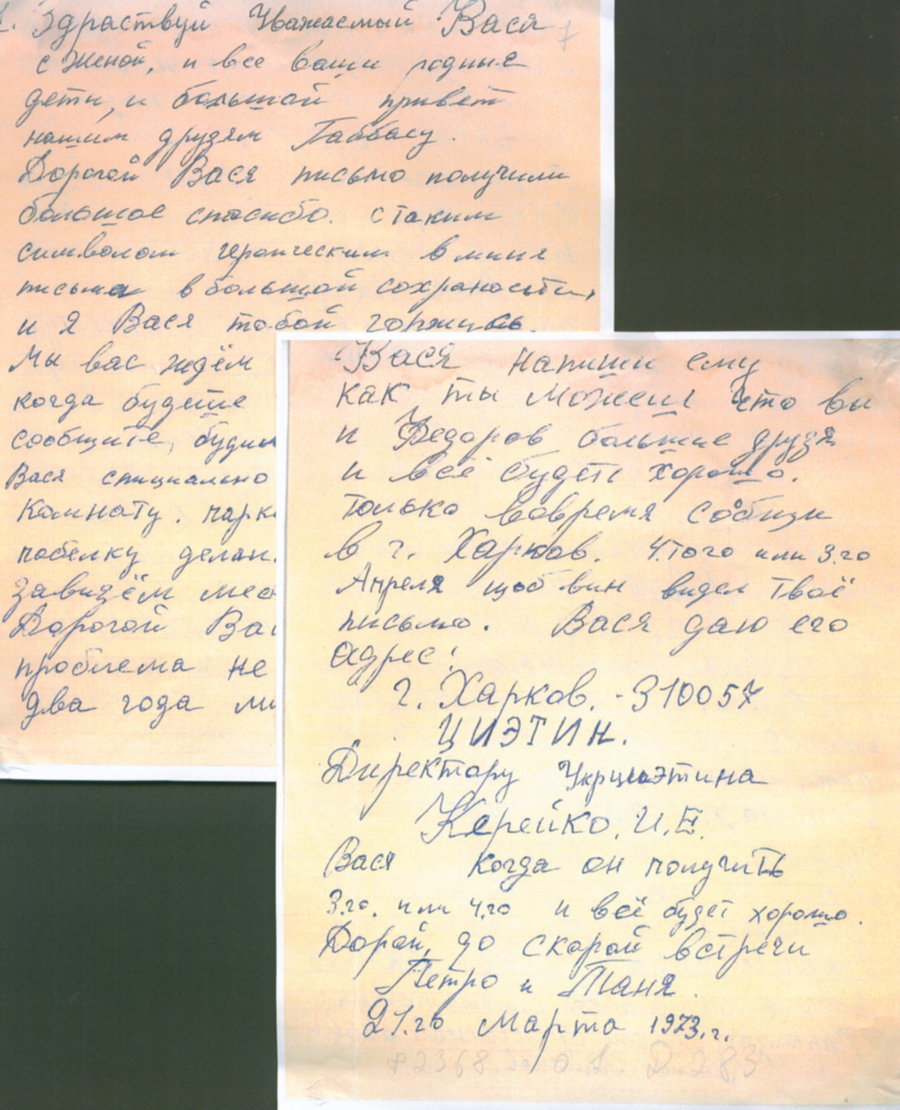 Здраствуй Уважаемый Вася
с Женой, и все ваши родные
дети, и большой привет
нашим друзям Габбасу.
Дорогой Вася письмо получили
большое спасибо. с таким
символом героическим в мине
письма в большой сохраности,
и я Вася тобой горжись.
Мы вас ждём
когда будете
сообщите, будим
Вася специально
Комнату. парк
побелку делан.
Дорогой Вас
проблема не
два года ми
Вася напиши ему
как ты можеш что вы
и Федоров большие друзя
и всё будеть хорошо.
только вовремя сообщи
в г. Харков. 4.того или 3.го
Апреля щоб вин видел твоё
письмо. Вася даю его
адрес:
г. Харков. - 310057
ЦИЭТИН.
Директору Укрциэтина
Керейко. И. Е.
Вася когда он получить
3.го. или 4.го и всё будет хорошо.
Дорой, до скорой встречи
Петро и Таня.
21.го марта 1973.г.